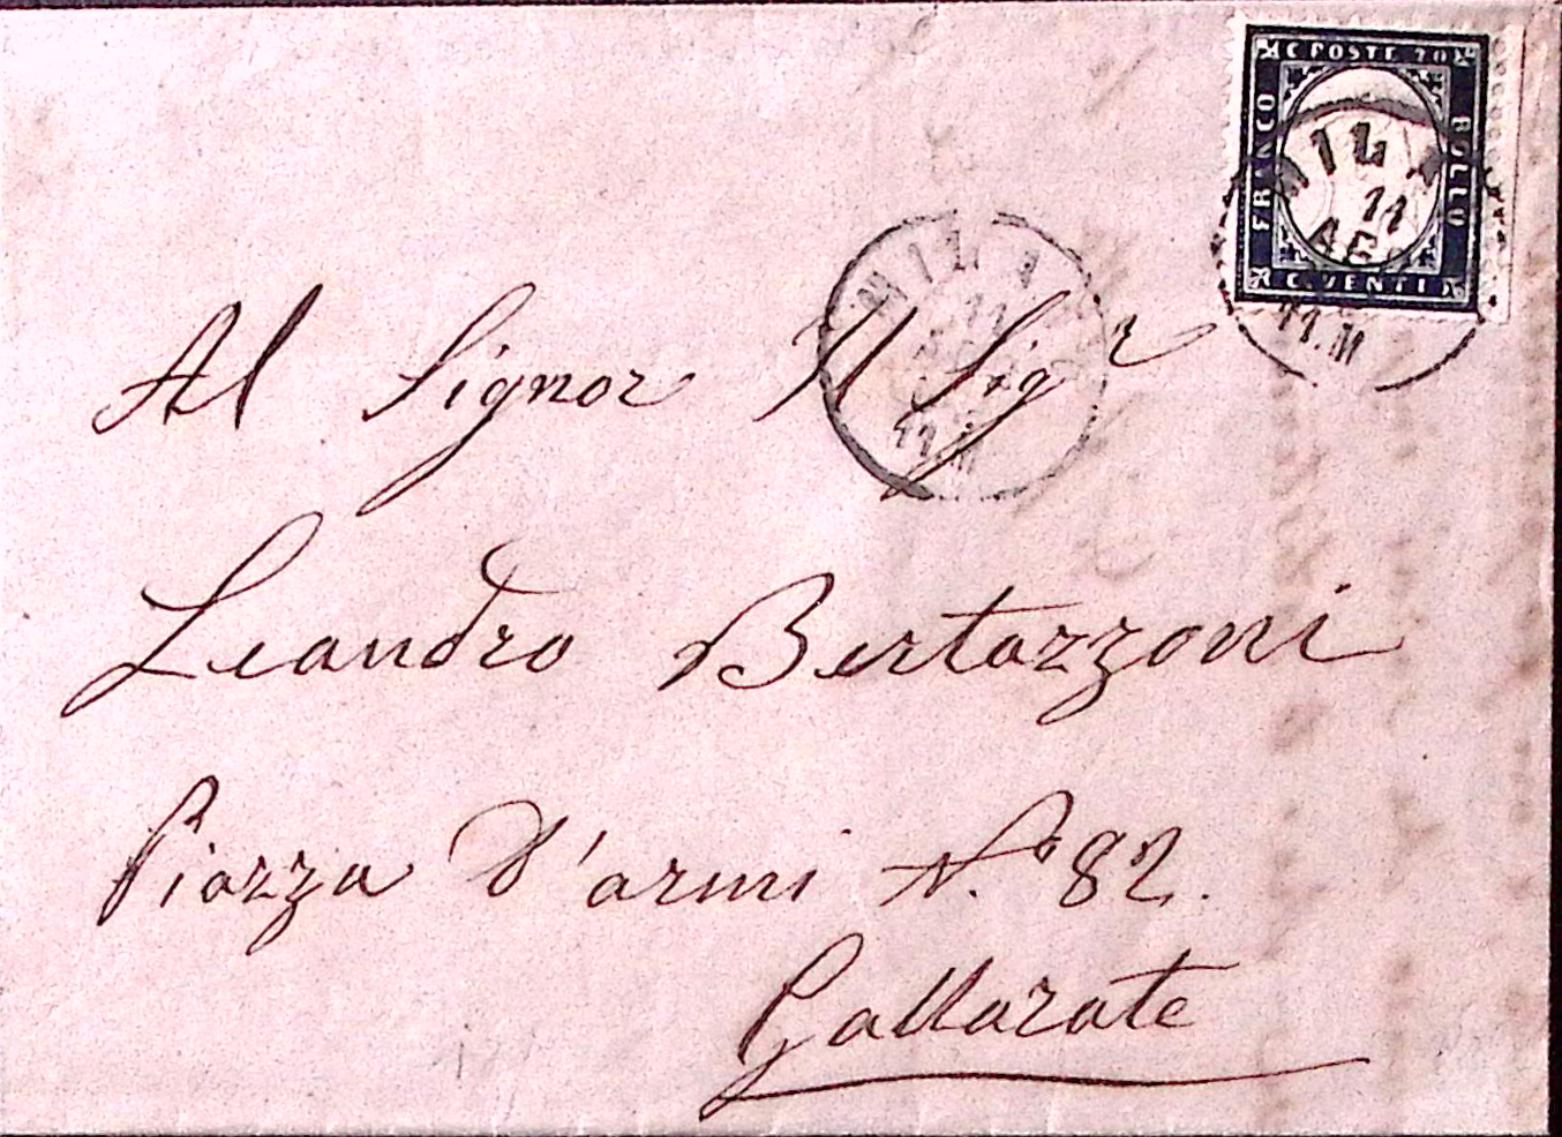 C POSTE 20
FRANCO
BOLLO
C. VENTI
MILA
11
11.M
MILA
11
11.M
Al Signor Il Sigr
Leandro Bertazzoni
Piazza d'armi N.º 82.
Gallarate